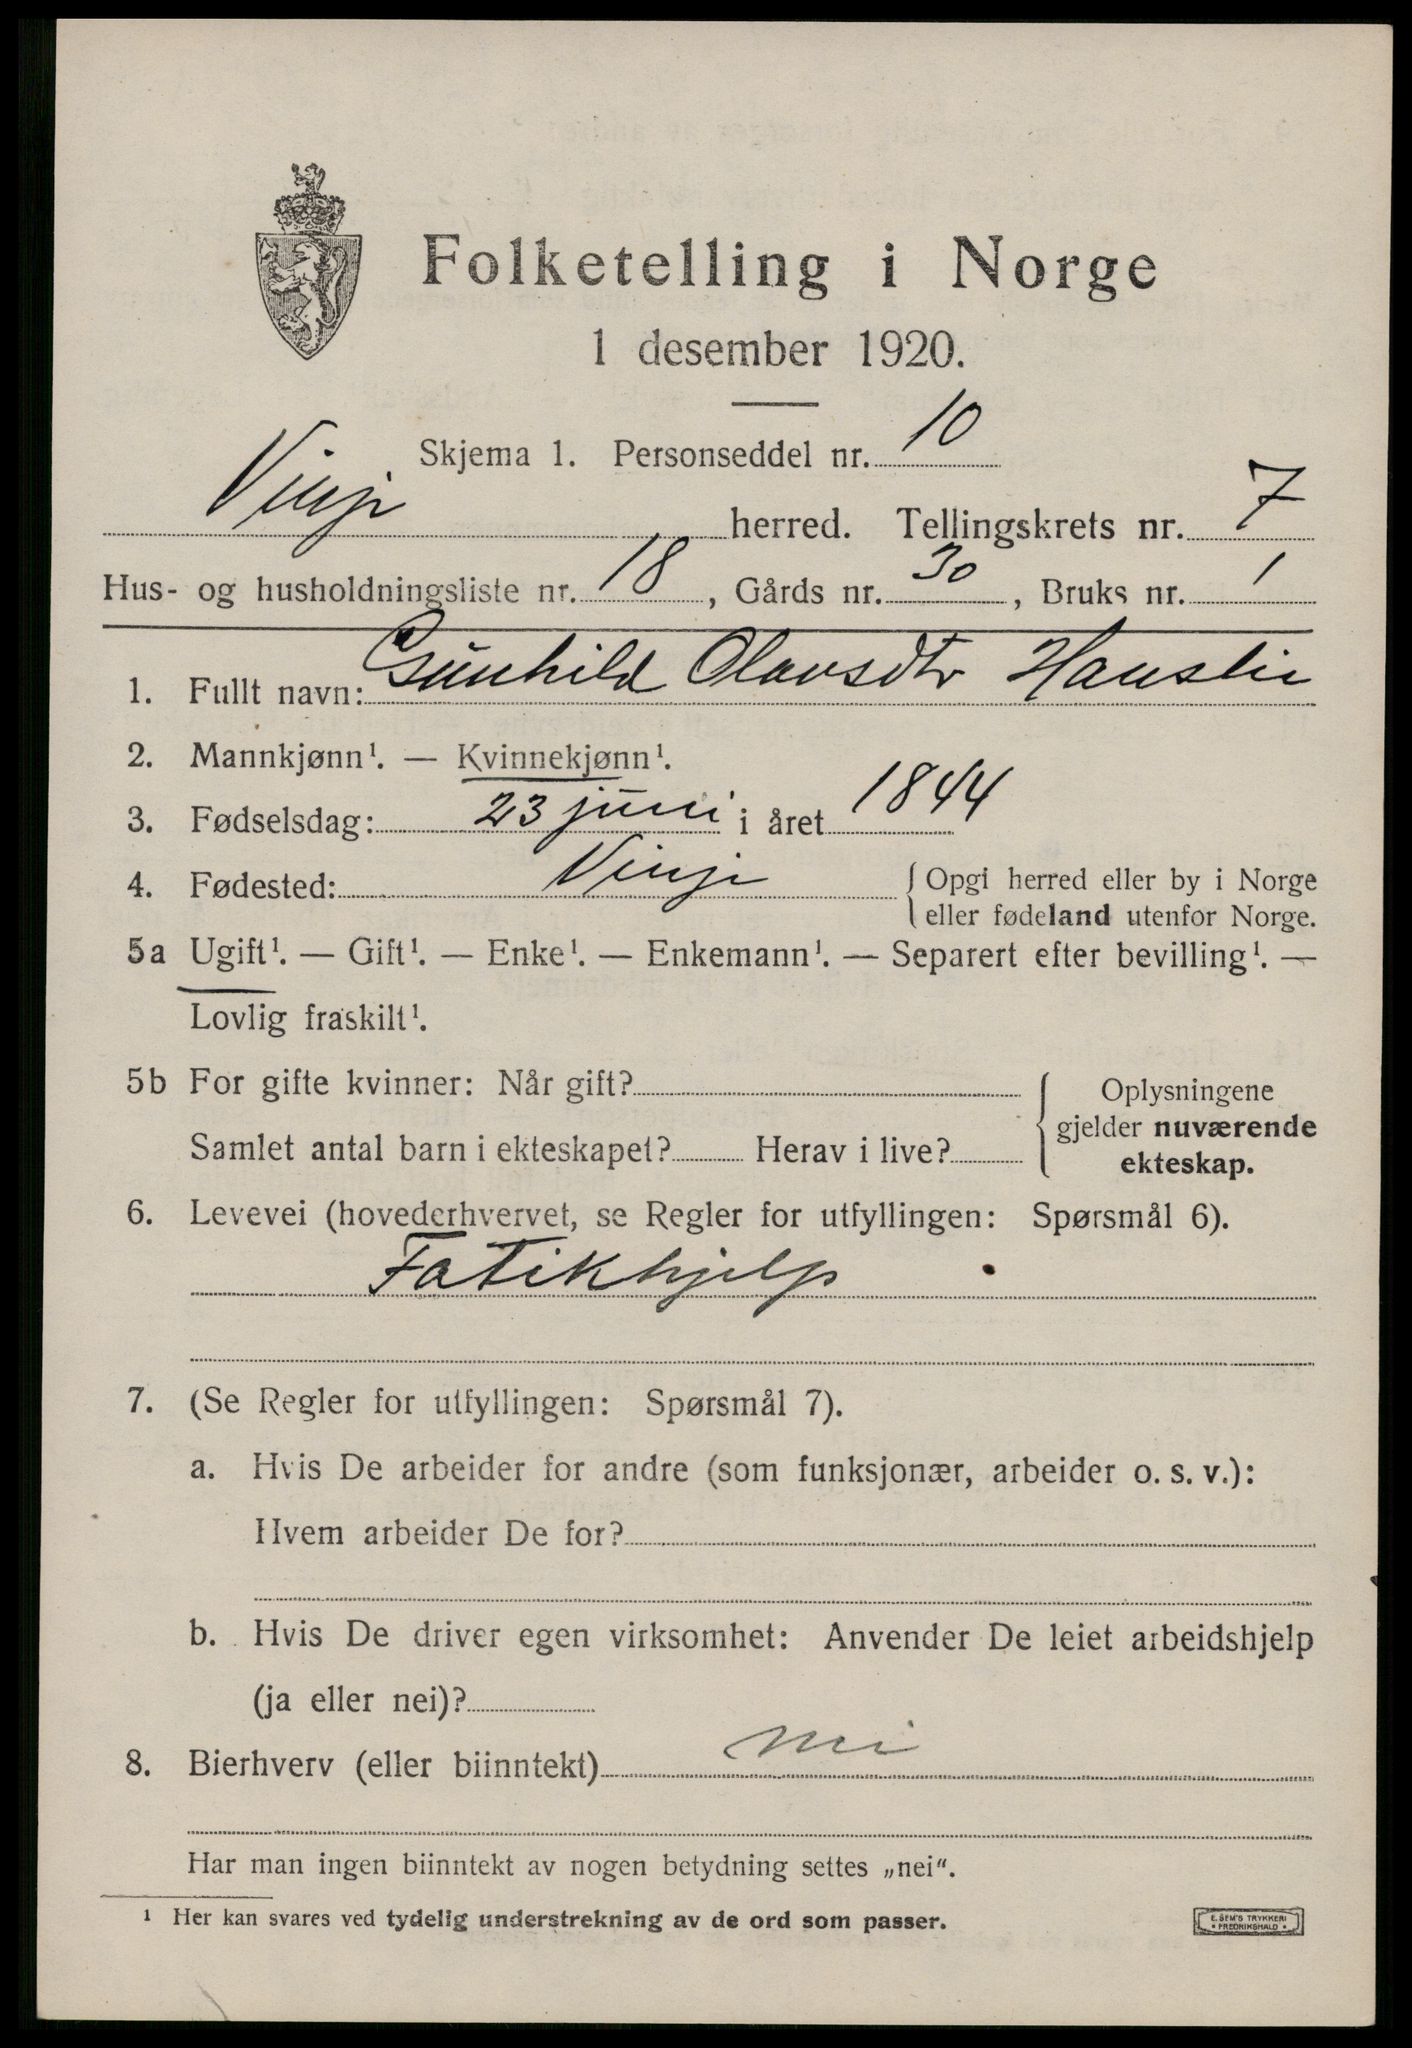 Folketelling i Norge
1 desember 1920.
Skjema 1. Personseddel nr. 10
Vinje herred. Tellingskrets nr. 7
Hus- og husholdningsliste nr. 18, Gårds nr. 30, Bruks nr. 1
1. Fullt navn: Gunhild Olavsdtr Hauslie
2. Mannkjønn¹. — Kvinnekjønn¹.
3. Fødselsdag: 23 juni i året 1844
4. Fødested: Vinje { Opgi herred eller by i Norge
eller fødeland utenfor Norge.
5a Ugift¹. — Gift¹. — Enke¹. — Enkemann¹. — Separert efter bevilling¹. —
Lovlig fraskilt¹.
5b For gifte kvinner: Når gift? Oplysningene
gjelder nuværende
Samlet antal barn i ekteskapet? Herav i live? ekteskap.
6. Levevei (hovederhvervet, se Regler for utfyllingen: Spørsmål 6).
Fatikhjelp
7. (Se Regler for utfyllingen: Spørsmål 7).
a. Hvis De arbeider for andre (som funksjonær, arbeider o. s. v.):
Hvem arbeider De for?
b. Hvis De driver egen virksomhet: Anvender De leiet arbeidshjelp
(ja eller nei)?
8. Bierhverv (eller biinntekt) nei
Har man ingen biinntekt av nogen betydning settes „nei“.
¹ Her kan svares ved tydelig understrekning av de ord som passer.
E. SEM'S TRYKKERI
• FREDRIKSHALD •